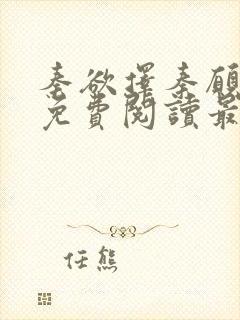 秦欲擇秦願
免費閱讀最
任熊